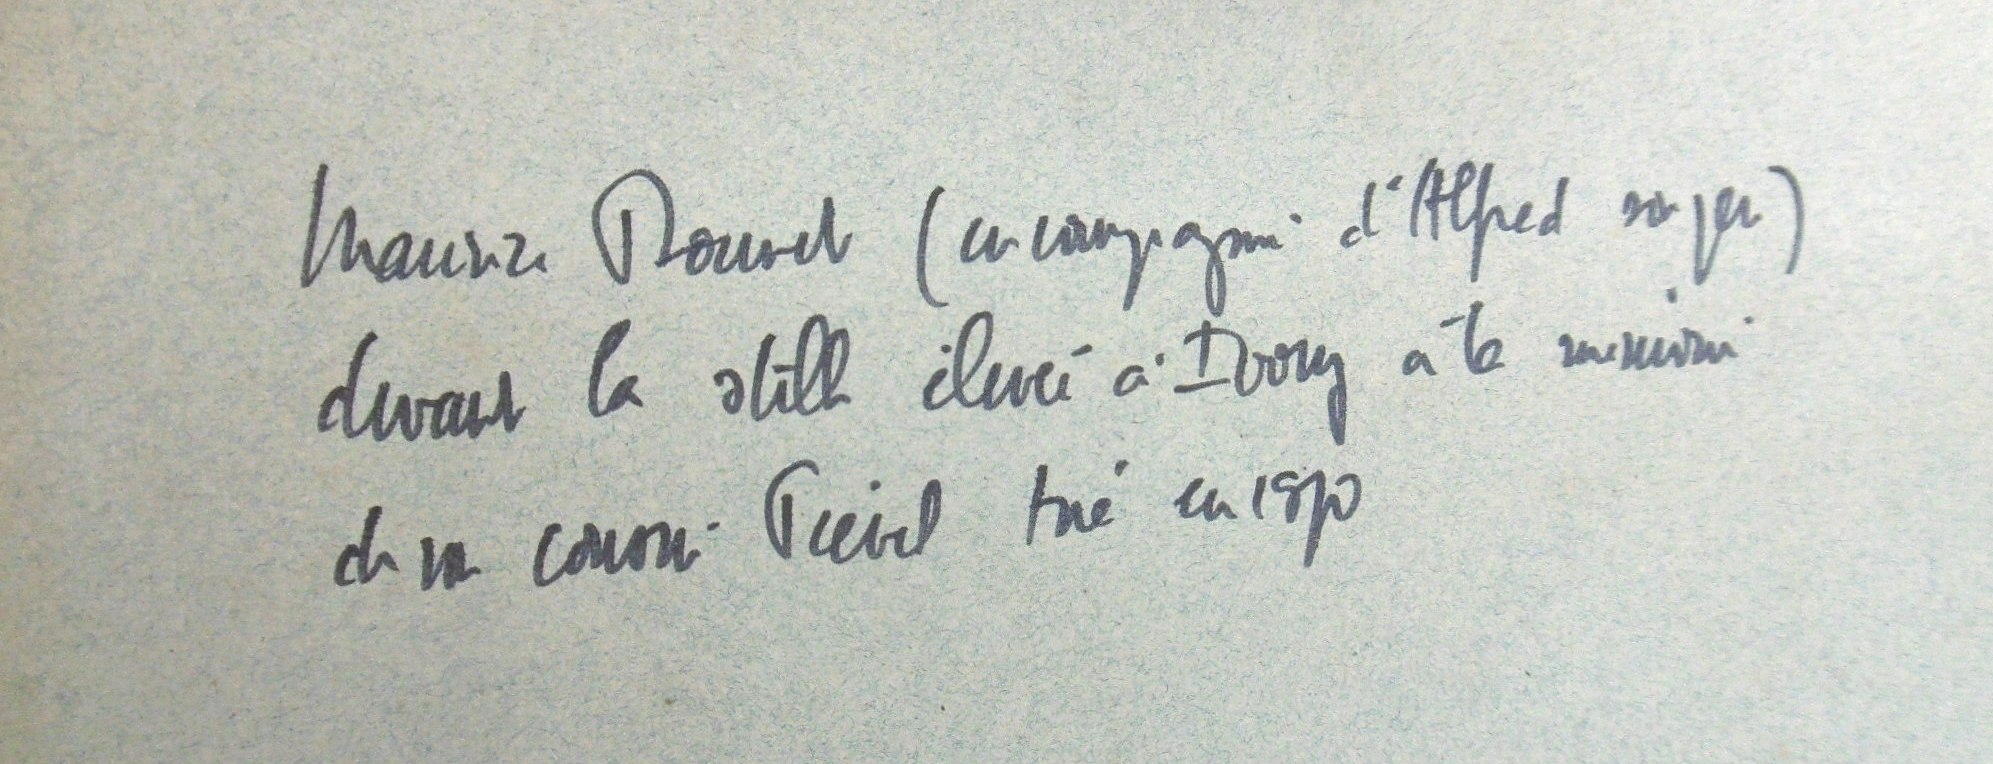 Maurice Rouvet (en compagnie d'Alfred
devant la stèle élevée à Ivory à la mémoire
de son cousin tué en 1870